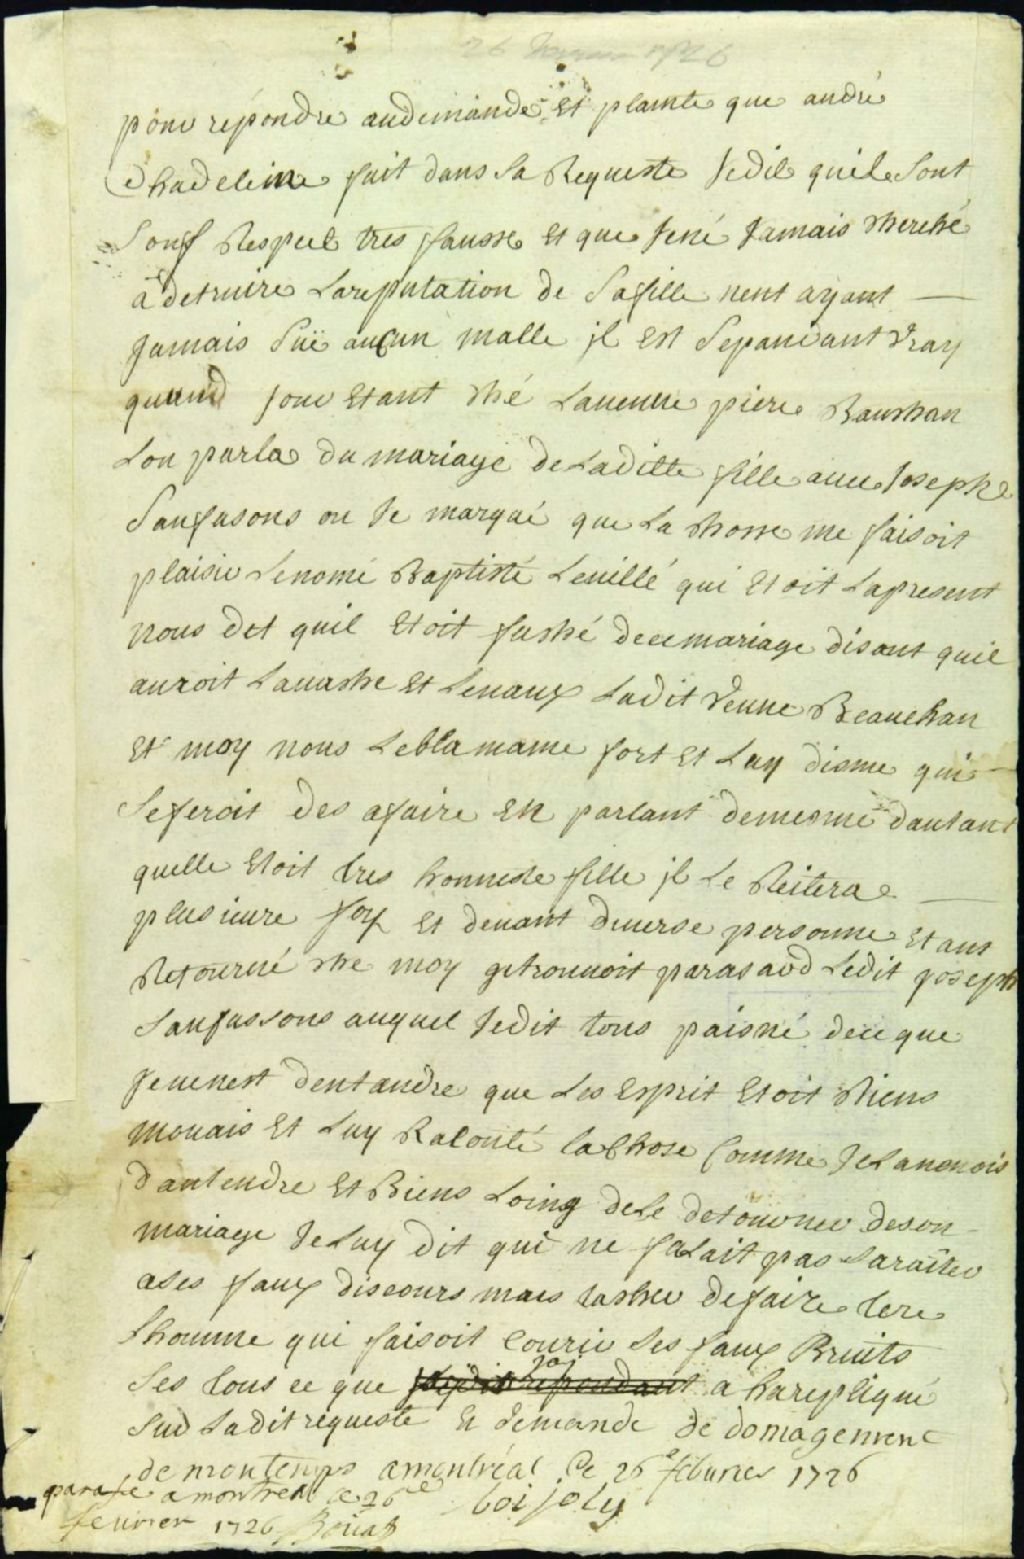 pour répondre audemande et plainte que andré
Chadeleine fait dans sa Requeste Jedit quils sont
souf Respect tres fausse et que Jené Jamais cherché
a detruire Lareputation de Safille nent ayant
Jamais Suë aucun malle jl est Sepandant vray
quund jour Etant ché Laueuue piere Baushan
Lon parla du mariage de Laditte fille auec Joseph
Sanfasons ou Je marqué que La chosse me faisoit
plaisir Lenomé Baptiste Leuillé qui Etoit Lapresent
nous det quil Etoit fasché decemariage disant quil
auroit Lauashe et Leuaux Ladit veuue Beauchan
Et moy nous Leblamame fort et Luy disme qui
Seferoit des afaire En parlant dememe dautant
quelle Etoit tres honneste fille jl Le Reitera
plusieure foy et deuant diuerse personne Etant
Retourné che moy getrouuoit parasard Ledit goseph
Sanfassons auquel Jedit tous paisné dece que
Jeuenest dentandre que Les Esprit Etoit Biens
mouais et Luy Raconté lachose comme JeLanonois
dantendre et Biens Loing deLe detourner deson
mariage JeLuy dit qui ne falait pas Saraiter
ases faux discours mais tascher defaire tere
Lhomme qui faisoit courir Ses faux Bruits
Ses tous ce que a harepliqué
Sur Ladit requeste Et demande de domagement
de montemps amontréal Ce 26e feburier 1726
parafé a montreal ce 26e boijoly
feurier 1726 Bouat